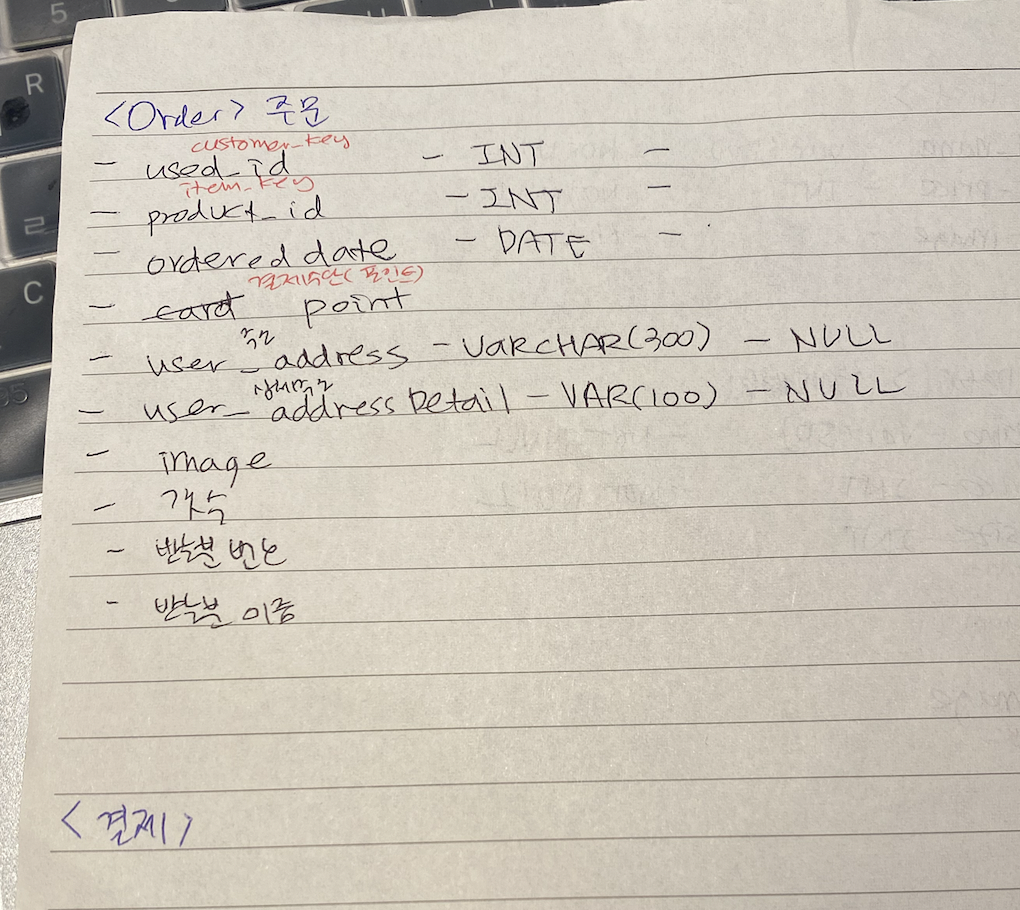 <Order> 주문
customer_key
- used_id - INT -
item_key
- product_id - INT -
- ordered date - DATE -
결제수단(포인트)
- card point
주소
- user_address - VARCHAR(300) - NULL
상세주소
- user_address Detail - VAR(100) - NULL
- image
- 갯수
- 받는분 번호
- 받는분 이름
<결제>